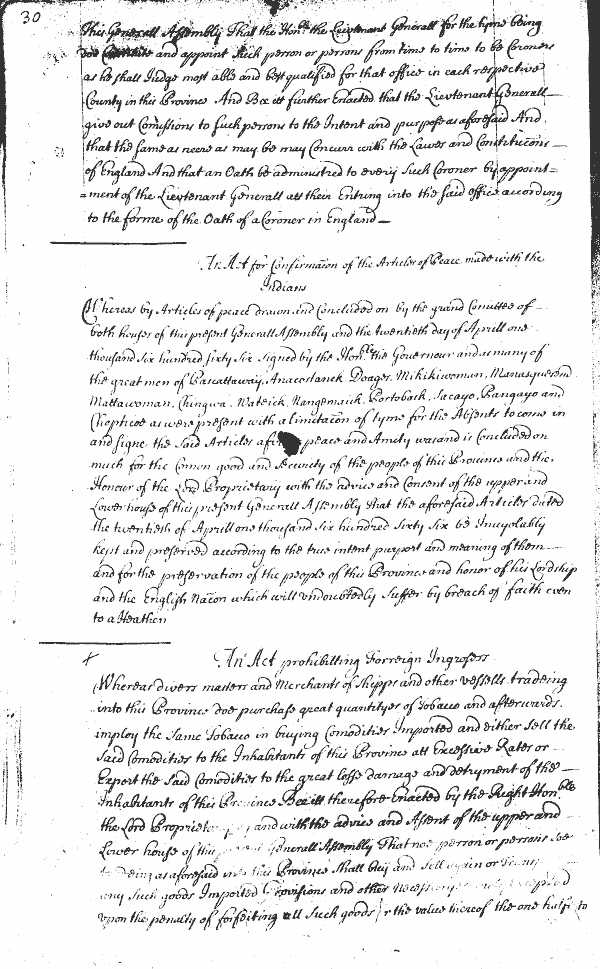 30
this Generall Assembly That the Honble the Lieutenant Generall for the tyme being
doe and appoint such person or persons from time to time to be Coroners
as he shall Judge most able and best qualified for that office in each respective
County in this Province And Bee itt further Enacted that the Lieutenant Generall
give out Comissions to such persons to the Intent and purpose as aforesaid And
that the same as neere as may be may Concurr with the Lawes and Constitucōns
of England And that an Oath be administred to every such Coroner by appoint=
=ment of the Lieutenant Generall att their Entring into the said office according
to the forme of the Oath of a Coroner in England
An Act for Confirmacōn of the Articles of Peace made with the
Indians
Whereas by Articles of peace drawn and Concluded on by the grand Comittee of
both houses of this present Generall Assembly and the twentieth day of Aprill one
thousand six hundred sixty six signed by the Honble the Governour and as many of
the great men of Pascattaway, Anacostanck, Doages, Mikikiwoman, Manasquesend
Mattawoman, Chingwa, Nangemaick, Portoback, Sacayo, Pangayo and
Choptico as were present with a limitacōn of tyme for the Absents to come in
and signe the said Articles peace and Amity was and is Concluded on
much for the Comon good and Security of the people of this Province and the
Honour of the Lord Proprietary with the advice and Consent of the upper and
Lower house of this present Generall Assembly that the aforesaid Articles dated
the twentieth of Aprill one thousand six hundred sixty six be Inviolably
kept and preserved according to the true intent purport and meaning of them
and for the preservation of the people of this Province and honor of his Lordship
and the English Nacōn which will undoubtedly suffer by breach of faith even
to a Heathen
An Act prohibitting Forreign Ingrossers
Whereas divers masters and Merchants of shipps and other vessells tradeing
into this Province doe purchase great quantityes of Tobacco and afterwards
imploy the same Tobacco in buying Comodities Imported and either sell the
said Comodities to the Inhabitants of this Province att Excessive Rates or
Export the said Comodities to the great losse damage and detryment of the
Inhabitants of this Province Bee itt therefore Enacted by the Right Honble
the Lord and with the advice and Assent of the upper and
Lower house of this Generall Assembly That noe person or persons soe
as aforesaid this Province shall buy and sell or
any such goods Imported provisions and other
upon the penalty of forfeiting all such goods or the value thereof the one halfe to